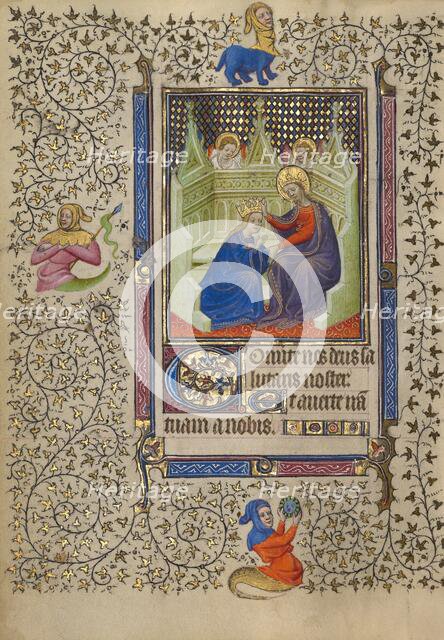 Heritage Heritage
Heritage Heritage
Conuerte nos deus sa
lutaris noster
Et auerte irã
tuam a nobis.
Heritage Heritage